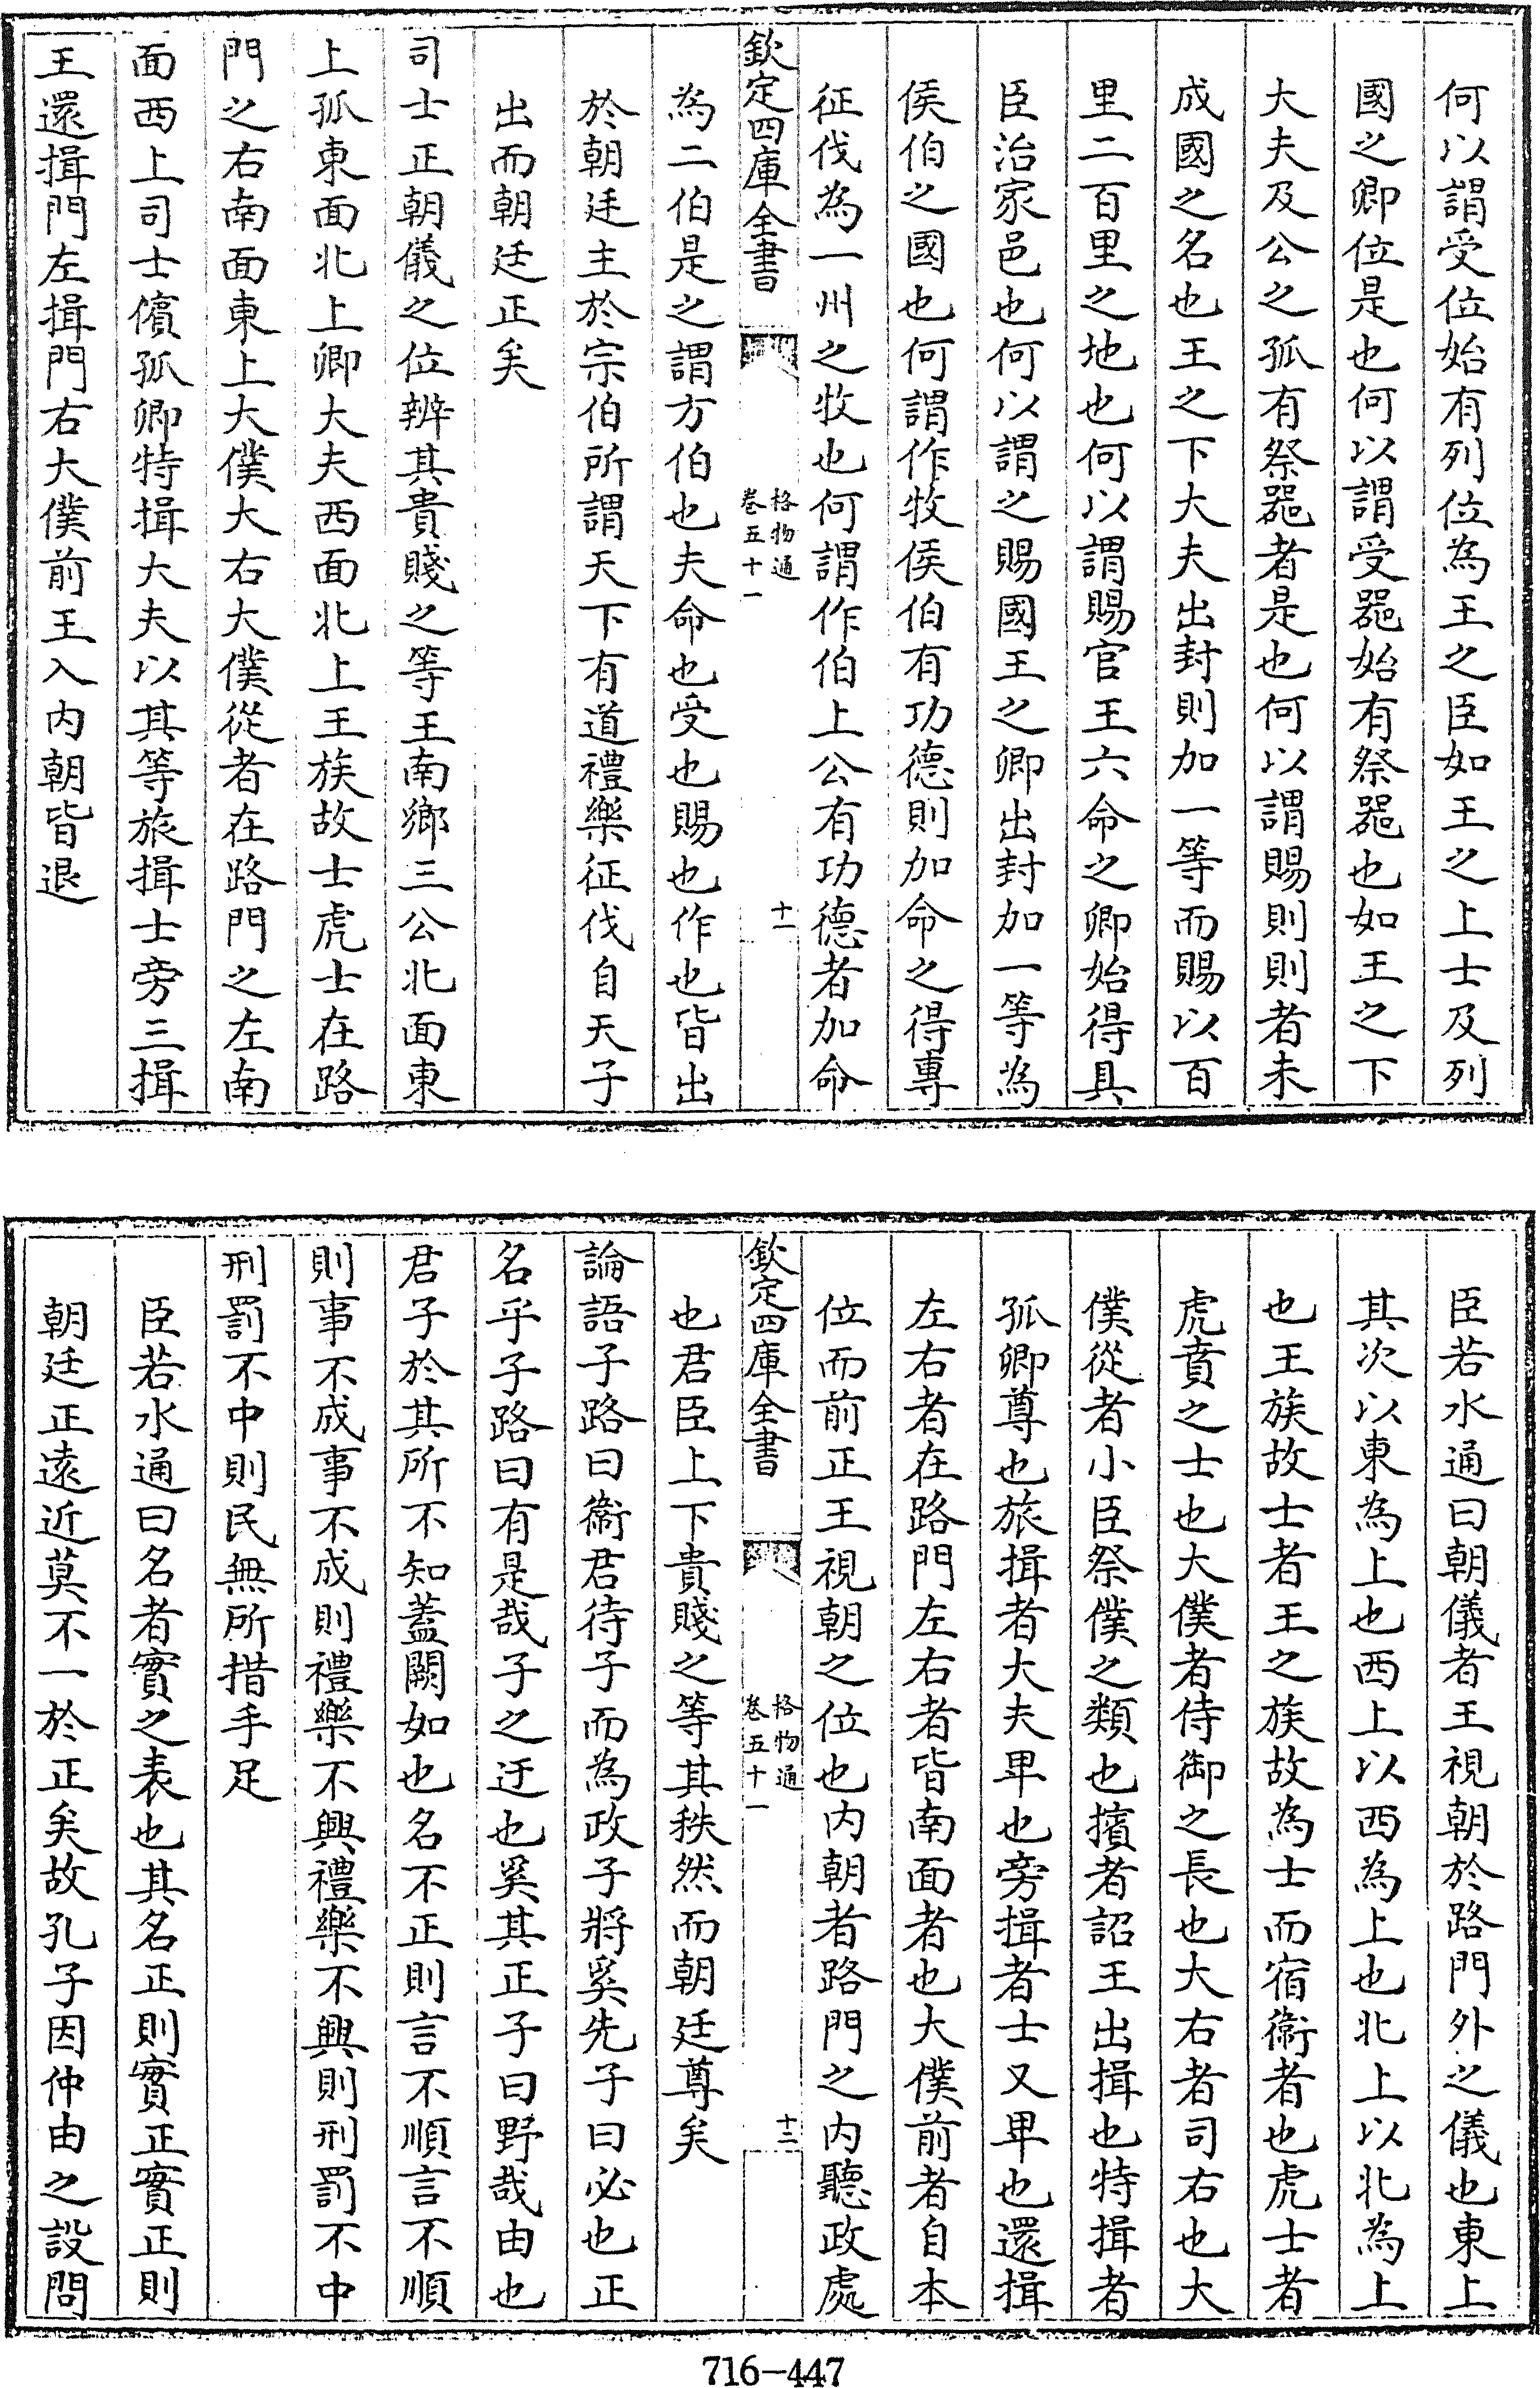 何以謂受位始有列位為王之臣如王之上士及列
國之卿位是也何以謂受器始有祭器也如王之下
大夫及公之孤有祭器者是也何以謂賜則則者未
成國之名也王之下大夫出封則加一等而賜以百
里二百里之地也何以謂賜官王六命之卿始得具
臣治家邑也何以謂之賜國王之卿出封加一等為
侯伯之國也何謂作牧侯伯有功德則加命之得專
征伐為一州之牧也何謂作伯上公有功德者加命
欽定四庫全書
格物通
卷五十一
十一
為二伯是之謂方伯也夫命也受也賜也作也皆出
於朝廷主於宗伯所謂天下有道禮樂征伐自天子
出而朝廷正矣
司士正朝儀之位辨其貴賤之等王南鄉三公北面東
上孤東面北上卿大夫西面北上王族故士虎士在路
門之右南面東上大僕大右大僕從者在路門之左南
面西上司士儐孤卿特揖大夫以其等旅揖士旁三揖
王還揖門左揖門右大僕前王入内朝皆退
臣若水通曰朝儀者王視朝於路門外之儀也東上
其次以東為上也西上以西為上也北上以北為上
也王族故士者王之族故為士而宿衞者也虎士者
虎賁之士也大僕者侍御之長也大右者司右也大
僕從者小臣祭僕之類也擯者詔王出揖也特揖者
孤卿尊也旅揖者大夫卑也旁揖者士又卑也還揖
左右者在路門左右者皆南面者也大僕前者自本
位而前正王視朝之位也内朝者路門之内聽政處
欽定四庫全書
格物通
卷五十一
十二
也君臣上下貴賤之等其秩然而朝廷尊矣
論語子路曰衞君待子而為政子將奚先子曰必也正
名乎子路曰有是哉子之迂也奚其正子曰野哉由也
君子於其所不知蓋闕如也名不正則言不順言不順
則事不成事不成則禮樂不興禮樂不興則刑罰不中
刑罰不中則民無所措手足
臣若水通曰名者實之表也其名正則實正實正則
朝廷正遠近莫不一於正矣故孔子因仲由之設問
716-447